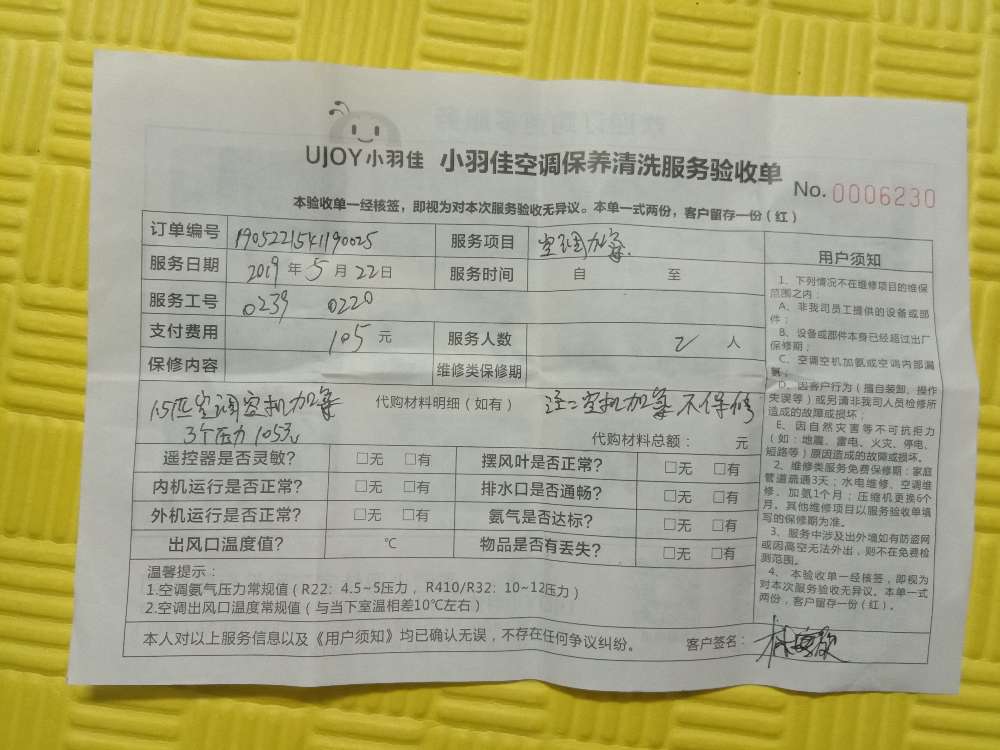 UJOY小羽佳 小羽佳空调保养清洗服务验收单 No. 0006230
本验收单一经核签，即视为对本次服务验收无异议。本单一式两份，客户留存一份（红）
订单编号 1905221541190025 服务项目 空调加氨.
服务日期 2019年5月22日 服务时间 自 至
服务工号 0239 0220
支付费用 105元 服务人数 2人
保修内容 维修类保修期
1.5匹空调空机加氨 代购材料明细（如有） 注：空机加氨不保修
3个压力 105元 代购材料总额： 元
遥控器是否灵敏？ □无 □有 摆风叶是否正常？ □无 □有
内机运行是否正常？ □无 □有 排水口是否通畅？ □无 □有
外机运行是否正常？ □无 □有 氨气是否达标？ □无 □有
出风口温度值？ ℃ 物品是否有丢失？ □无 □有
温馨提示：
1.空调氨气压力常规值（R22：4.5~5压力，R410/R32：10~12压力）
2.空调出风口温度常规值（与当下室温相差10℃左右）
本人对以上服务信息以及《用户须知》均已确认无误，不存在任何争议纠纷。 客户签名：
用户须知
1、下列情况不在维修项目的维保
范围之内：
A、非我司员工提供的设备或部
件；
B、设备或部件本身已经超过出厂
保修期；
C、空调空机加氨或空调内部漏
氨；
D、因客户行为（擅自装卸、操作
失误等）或另请非我司人员检修所
造成的故障或损坏；
E、因自然灾害等不可抗拒力
（如：地震、雷电、火灾、停电、
短路等）原因造成的故障或损坏。
2、维修类服务免费保修期：家庭
管道疏通3天；水电维修、空调维
修、加氨1个月；压缩机更换6个
月。其他维修项目以服务验收单填
写的保修期为准。
3、服务中涉及出外墙如有防盗网
或因高空无法外出，则不在免费检
测范围。
4、本验收单一经核签，即视为
对本次服务验收无异议。本单一式
两份，客户留存一份（红）。